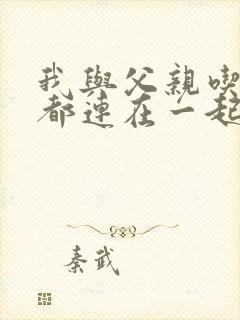 我與父親喫
都連在一起
秦武